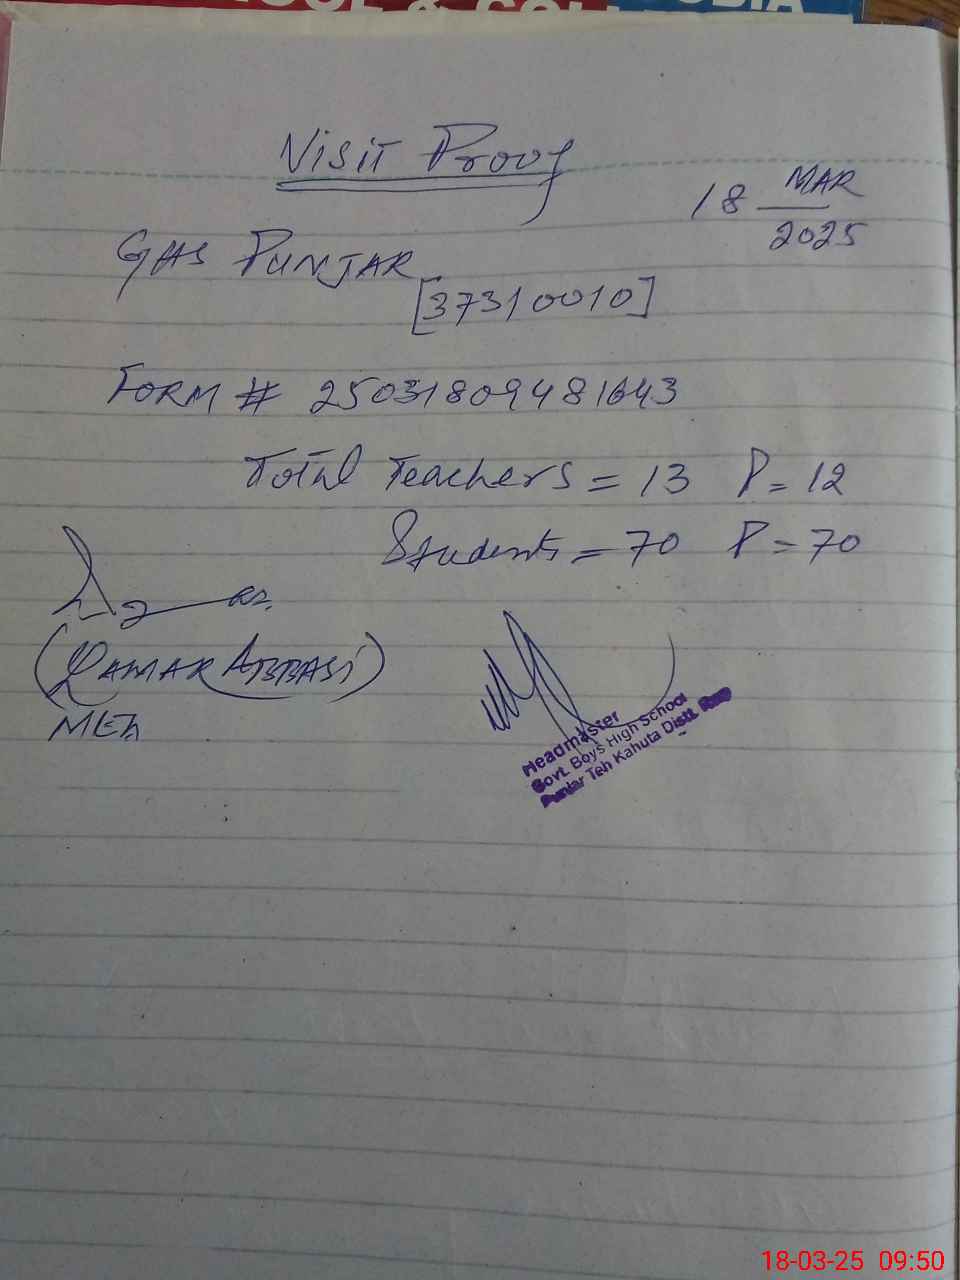 Visit Proof
18 MAR
2025
GHS PUNJAR
[37310010]
FORM # 25031809481643
Total Teachers = 13 P = 12
Students = 70 P = 70
(QAMAR ABBASI)
MEA
Headmaster
Govt. Boys High School
Punjar Teh Kahuta Distt. Rwp
18-03-25 09:50